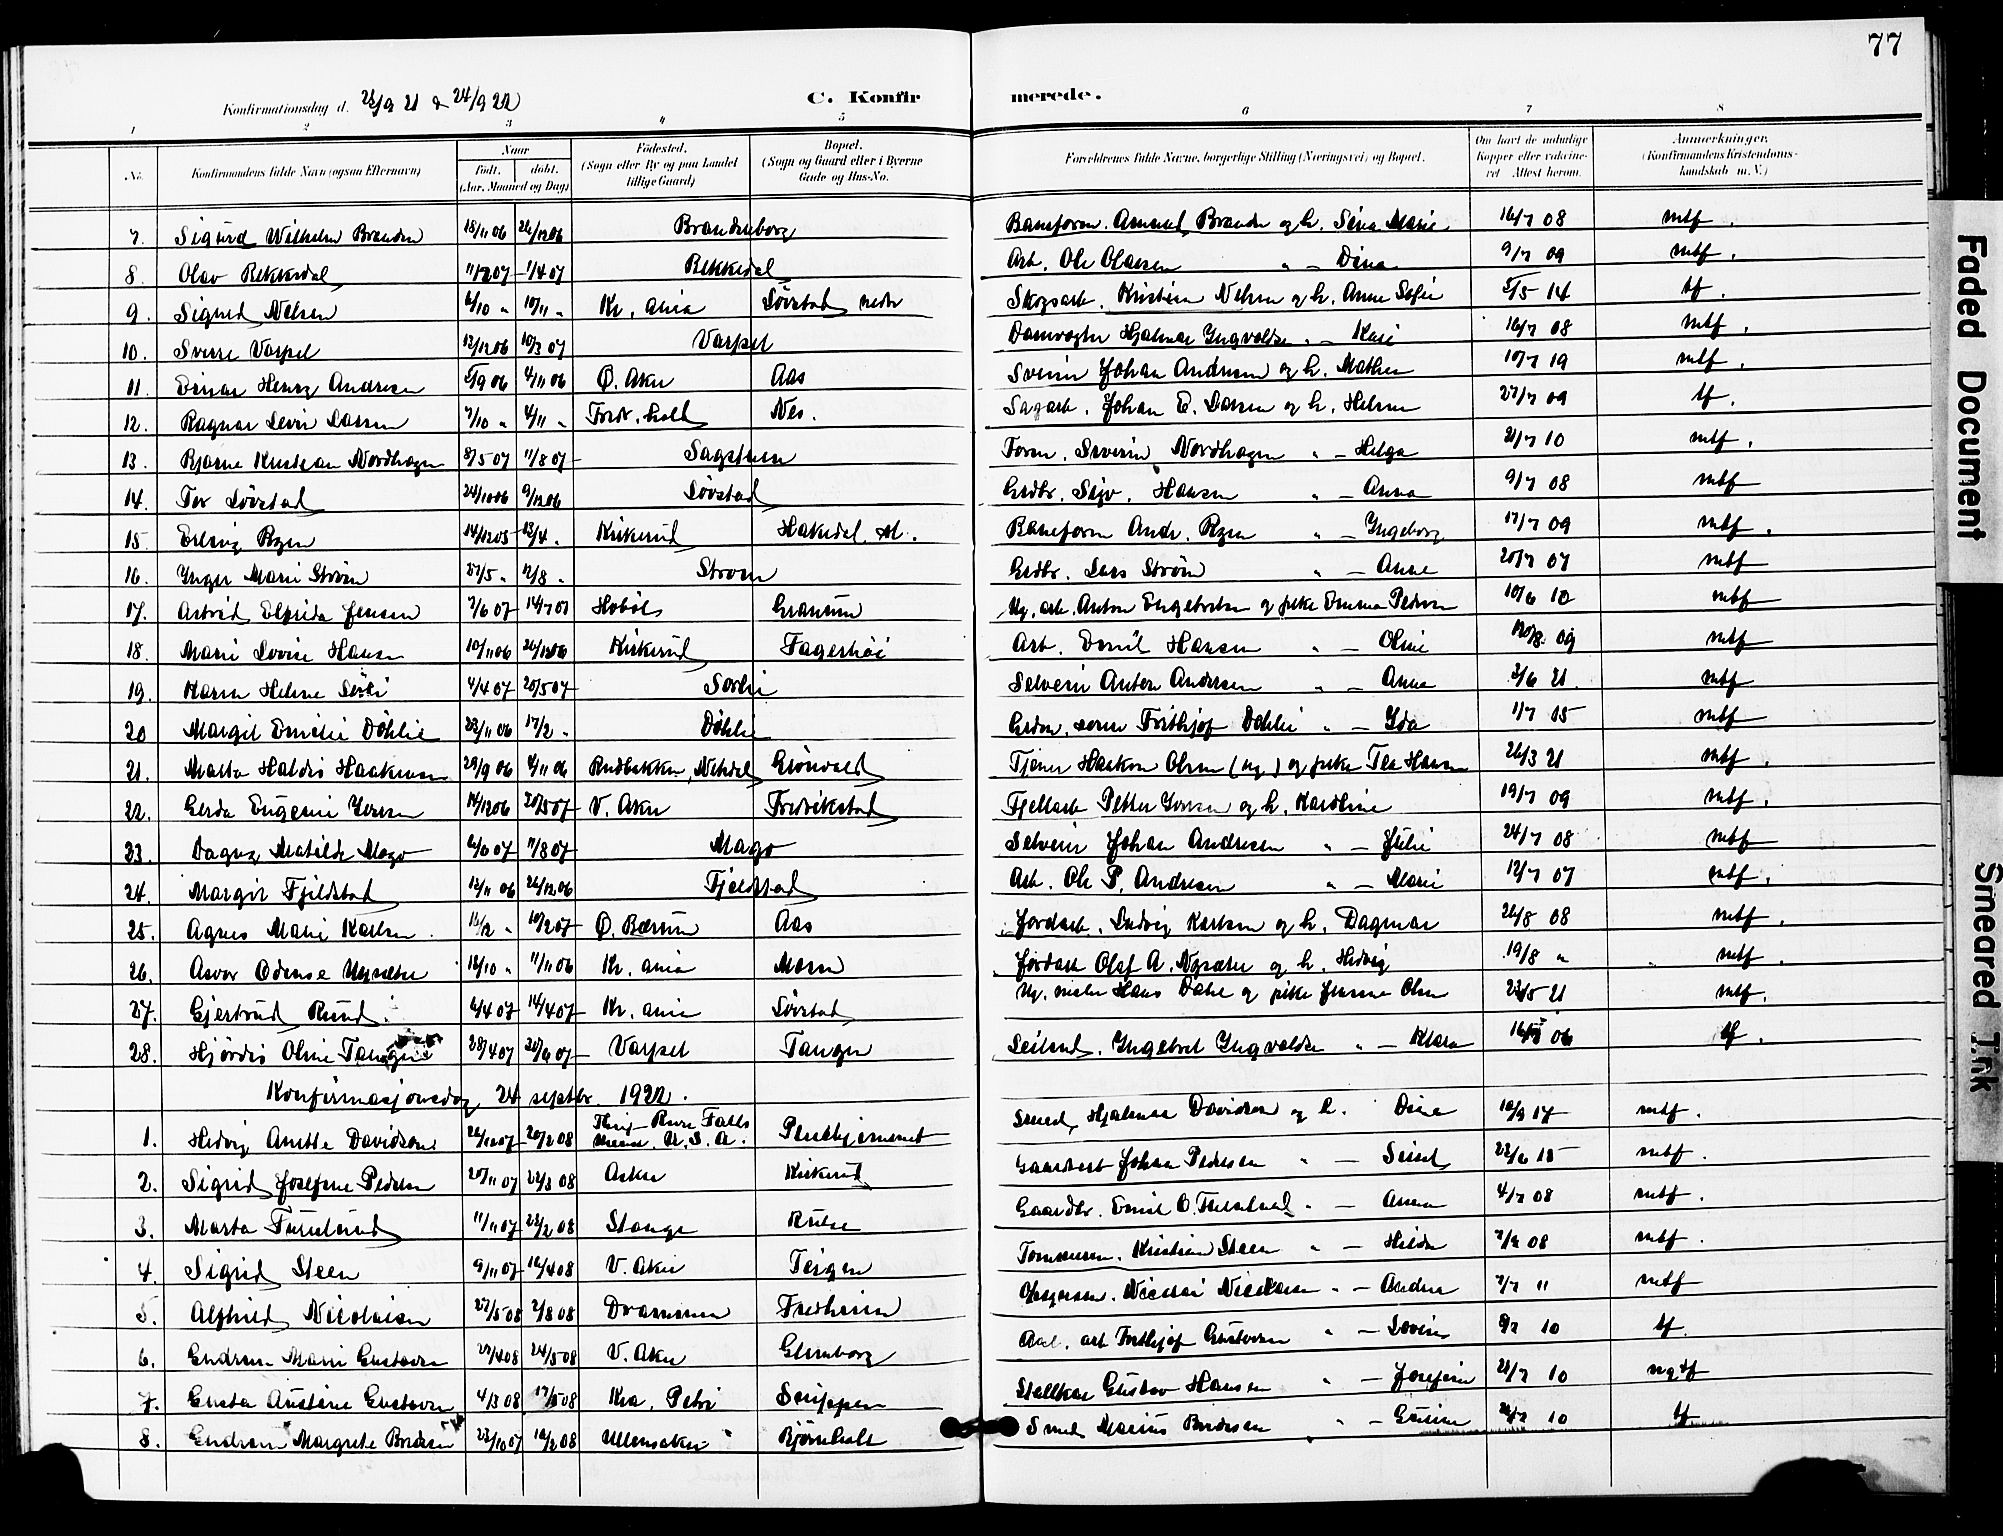 77
Konfirmationsdag d. 25/9 21 & 24/9 22
C. Konfirmerede.
1 2 3 4 5 6 7 8
No.
Konfirmandens fulde Navn (ogsaa Efternavn)
Naar
født. døbt.
(Aar, Maaned og Dag)
Fødested.
(Sogn eller By og paa Landet
tillige Gaard)
Bopæl.
(Sogn og Gaard eller i Byerne
Gade og Hus-No.
Forældrenes fulde Navne, borgerlige Stilling (Næringsvei) og Bopæl.
Om havt de naturlige
Kopper eller vaccine-
ret Attest herom.
Anmærkninger.
(Konfirmandens Kristendoms-
kundskab m. V.)
7. Sigurd Wilhelm Branden 18/11 06 26/12 06 Brandenborg Baneform. Branden og h. Sina Marie 16/7 08 mtf.
8. Olav Bekkedal 1/4 07 Bekkedal Arb. Ole Olausen " — Dina 9/7 09 mtf.
9. Signed Nelsen 6/10 " 10/11 " Kr. ania Løvstad nedr Skogsarb. Kristian Nelsen og h. Anne Sofie 5/5 14 tf.
10. Sverre Varpet 12/12 06 10/3 07 Varpet Damvogter Hjalmar Yngvoldsen " — Kari 16/7 08 mtf.
11. Einar Henry Andresen 5/9 06 4/11 06 Ø. Aker Aas Sveiser Johan Andresen og h. Mathea 10/7 19 mtf.
12. Ragnar Levi Larsen 7/10 " 4/11 " Fredr. hald Nes. Sagarb. Johan E. Larsen og h. Helene 27/7 09 tf.
13. Bjarne Kristian Nordhagen 8/5 07 11/8 07 Sagstuen Form. Severin Nordhagen " — Helga 21/7 10 mtf.
14. Tor Løvstad 24/10 06 9/12 06 Løvstad Grdbr. Hansen " — Anna 9/7 08 mtf
15. Erling Ryen 14/12 05 Kirkerud Hakedal. Baneform Andr. Ryen " — Yngeborg 17/7 09 mtf.
16. Ynger Marie Strøm 27/5 " 12/8 " Strøm Grdbr. Lars Strøm " — Anne 20/7 07 mtf
17. Astrid Elfrida Jensen 7/6 07 14/7 07 Hobøl Granum Ug. arb. Anton Engebretsen og pike Emma Pedersen 10/6 10 mtf
18. Marie Lovise Hansen 10/11 06 26/12 06 Kirkerud Fagerhøi Arb. Emil Hansen " — Oline 09 mtf
19. Karen Helene Sørli 4/4 07 20/5 07 Sørli Selveier Anton Andersen " — Anna 3/6 21. mtf
20 Margit Emilie Døhlie 23/11 06 17/2 " Døhlie Fridthjof Døhlie " — Ida 1/7 05 mtf
21. Marta Haldis Haakensen 29/9 06 4/11 06 Rudbakken, Nitedal Grønvold Tjener Haakon Olsen (ug.) og pike Tea Hansen 26/3 21 mtf.
22. Gerda Eugenie Iversen 14/12 06 20/5 07 V. Aker Fredrikstad Fjellarb. Petter Iversen og h. Karoline 19/7 09 mtf.
23. Dagny Matilde Mago 6/6 07 11/8 07 Mago Selveier Johan Andresen " — Julie 24/7 08 mtf
24. Margit Fjeldstad 12/11 06 26/12 06 Fjeldstad Arb. Ole P. Andresen " — Marie 12/7 07 mtf.
25. Agnes Marie Karlsen. 11/2 " 10/2 07 Ø. Bærum Aas Jordarb. Ludvig Karlsen og h. Dagmar 26/8 08 mtf.
26. Asvor Odense Nysæter 16/10 " 11/11 06 Kr. ania Moen Jordarb Olaf A. Nysæter og h. Hedvig 19/8 " mtf.
27. Gjertrud Ruud. 6/4 07 14/4 07 Kr. ania Løvstad Ug. Hans Dahl og pike Jensine Olsen 23/5 21 mtf.
28. Hjørdis Oline Tangen 28/4 07 Varpet Tangen Yngebret Yngvoldsen " — Klara 06 tf.
Konfirmasjonsdag 24 septbr. 1922.
1. Hedvig Anette Davidsen 26/12 07 20/2 08 Thief River Falls U.S.A. Smed Hjalmar Davidsen og h. Dina 10/9 17 mtf.
2. Sigrid Josefine Pedersen 20/11 07 22/3 08 Asker Kirkerud Gaardbest Johan Pedersen " — 22/6 15 mtf.
3. Marta Furulund 11/11 07 23/2 08 Stange Gaardbr. Emil O. " — Anna 4/7 08 mtf.
4. Sigrid Steen 9/11 07 16/4 08 V. Aker Teigen Tømmerm. Kristian Steen " — Hilda 08 mtf.
5. Alfhild Nicolaisen 27/5 08 2/8 08 Drammen Fredheim Nicolai Nicolaisen " — Andrea 7/7 11 mtf
6. Gudrun Marie Gustavsen 24/5 08 V. Aker Glemborg arb Fridthjof Gustavsen " — Lovise 10 tf.
7. Gusta Austine Gustavsen 4/3 08 Kra. Petri Stallkar Gustav Hansen " — Josefine 21/7 10 mgtf
8. Gudrun Margrete Berdesen 23/10 07 16/2 08 Ullensaker Bjørnholt Smed Marius Berdesen " — 10 tf
Faded Document
Smeared Ink